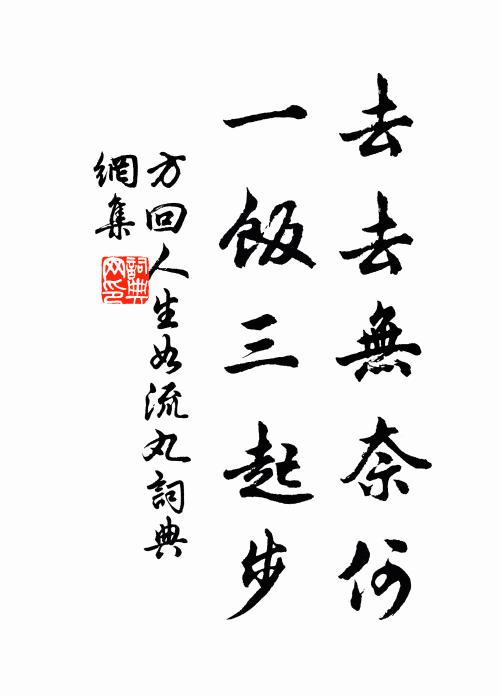 去去無奈何
一飯三起步
方回人生如流丸詞典
網集
詞典
网印